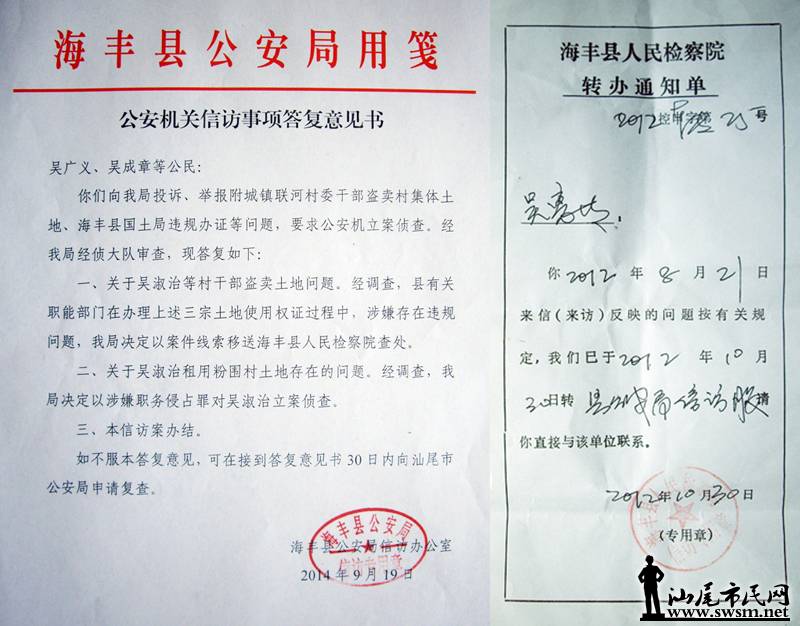 海丰县公安局用笺
公安机关信访事项答复意见书
吴广义、吴成章等公民：
你们向我局投诉、举报附城镇联河村委干部盗卖村集体土
地、海丰县国土局违规办证等问题，要求公安机立案侦查。经
我局经侦大队审查，现答复如下：
一、关于吴淑治等村干部盗卖土地问题。经调查，县有关
职能部门在办理上述三宗土地使用权证过程中，涉嫌存在违规
问题，我局决定以案件线索移送海丰县人民检察院查处。
二、关于吴淑治租用粉围村土地存在的问题。经调查，我
局决定以涉嫌职务侵占罪对吴淑治立案侦查。
三、本信访案办结。
如不服本答复意见，可在接到答复意见书30日内向汕尾市
公安局申请复查。
海丰县公安局信访办公室
2014年9月19日
海丰县公安局
信访专用章
海丰县人民检察院
转办通知单
2012控申字第 25号
吴
你2012年8月21日
来信（来访）反映的问题按有关规
定，我们已于2012年10月
30日转县公安局信访股请
你直接与该单位联系。
2012年10月30日
（专用章）
汕尾市民网
www.swsm.net